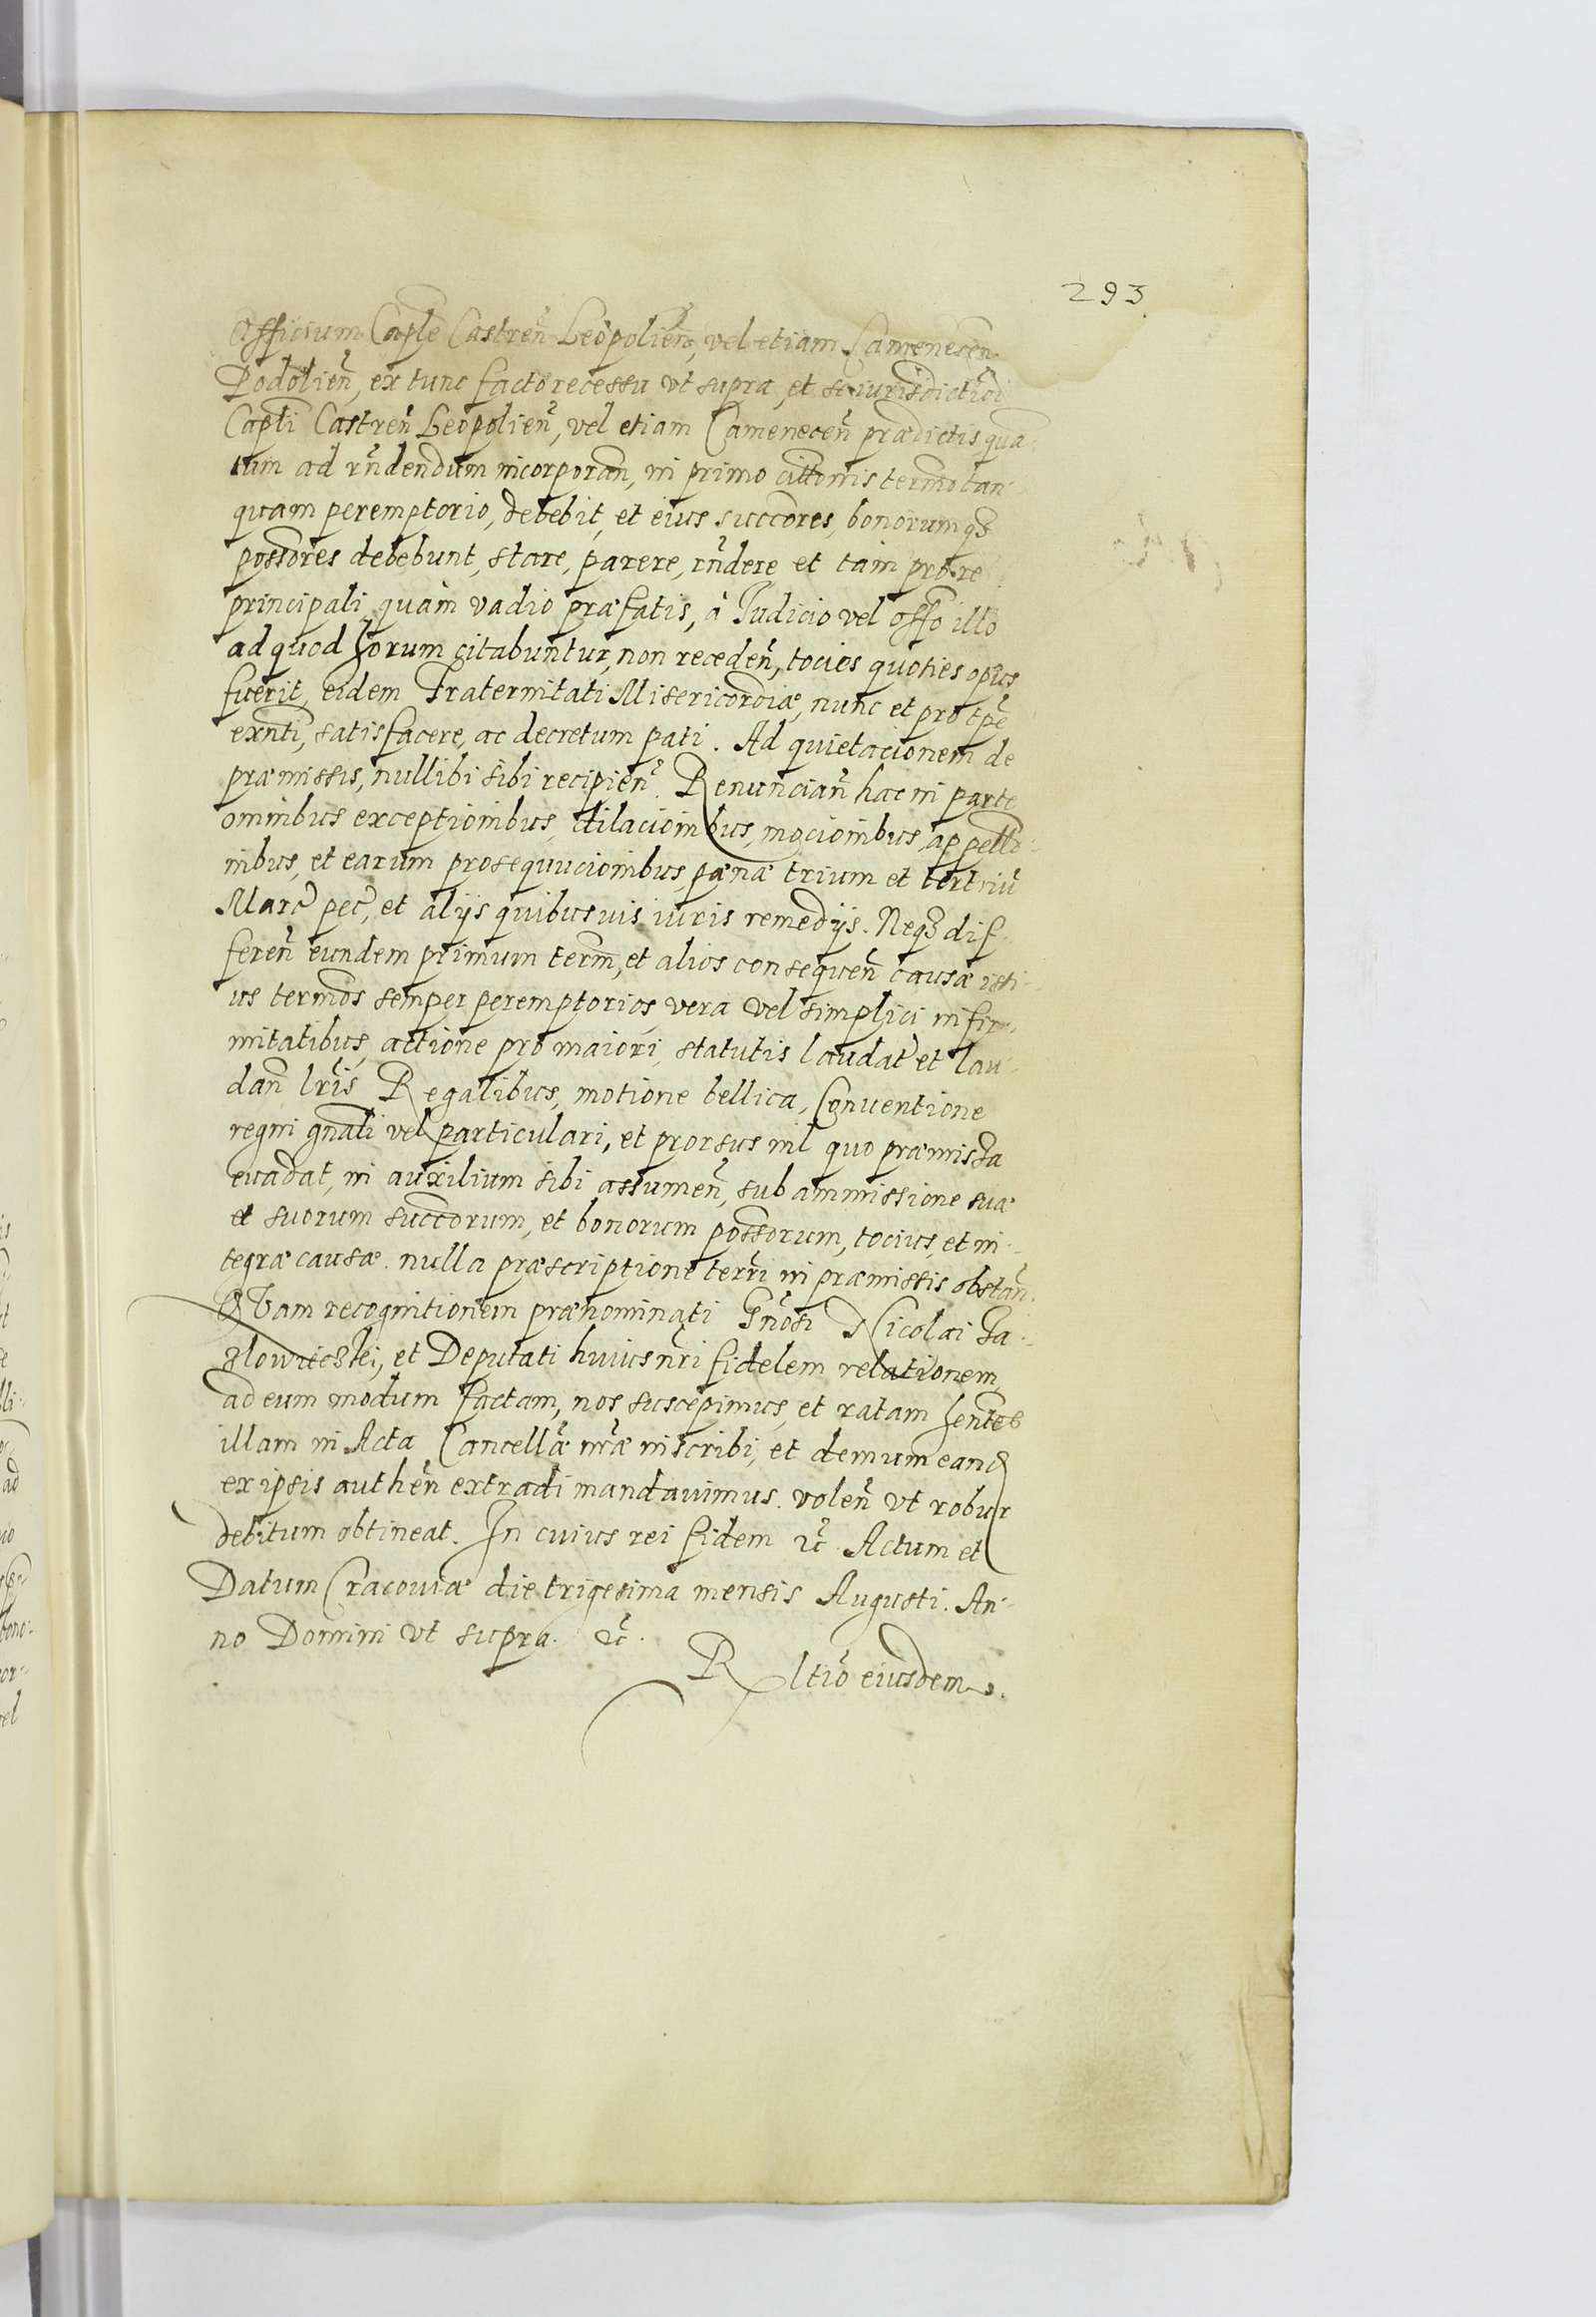 293
Officium Caple Castren̄ Leopolien̄, vel etiam Camenecen̄
Podolien̄, ex tunc facto recessu vt supra, et se iurisdictioī
Capli Castren̄ Leopolien̄, vel etiam Camenecen̄ prædictis qua
tum ad rn̄dendum incorporan̄, in primo cittonis termo tan
quam peremptorio, debebit, et eius succores, bonorumqȝ
possores debebunt, stare, parere, rn̄dere et tam pro re
principali quàm vadio præfatis, à Judicio vel offo illo
ad quod horum citabuntur, non receden̄, tocies quoties opus
fuerit, eidem Fraternitati Misericordiæ, nunc et pro tpē
exnti, satisfacere, ac decretum pati. Ad quietacionem de
præmissis, nullibi sibi recipien̄. Renuncian̄ hac in parte
omnibus exceptionibus, dilacionibus, mocionibus, appello
nibus, et earum prosequucionibus, pænæ trium et
Marc̄ pec̄, et alijs quibusuis iuris remedijs. Neqȝ dif-
feren̄ eundem primum term̄, et alios consequen̄ causæ isti-
us termos semper peremptorios, vera vel simplici infir-
mitatibus, actione pro maiori, statutis laudat̄ et lau-
dan̄ lris Regalibus, motione bellica, Conuentione
regni gnali vel particulari, et prorsus nil quo præmissa
euadat, in auxilium sibi assumen̄, sub ammissione suæ
et suorum succorum, et bonorum possorum, tocius, et in-
tegræ causæ. nulla præscriptione terri in præmissis obstan̄.
QVam recognitionem prænominati Gn̄osi Nicolai Ja-
zlowieczki, et Deputati huius nri fidelem relationem
ad eum modum factam, nos suscepimus, et ratam hentes
illam in Acta Cancellæ nræ inscribi, et demum eand
ex ipsis authen̄ extradi mandauimus. volen̄ vt robur
debitum obtineat. In cuius rei fidem ꝛc̄ Actum et
Datum Cracouiæ die trigesima mensis Augusti. An-
no Domini vt supra. ꝛc̄.
Rltio eiusdem.